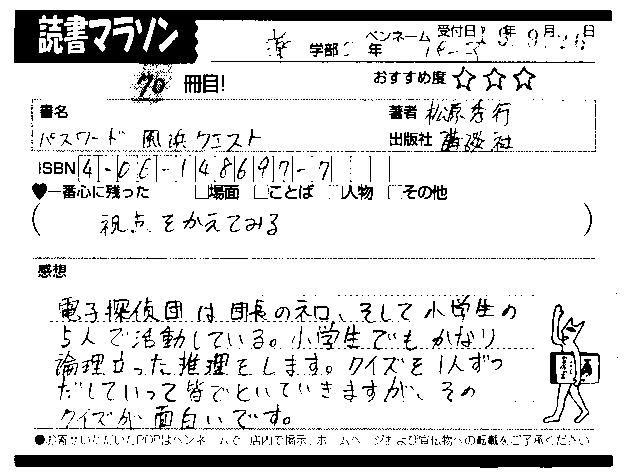 読書マラソン
薬 学部 年 ペンネーム 受付日 年 9月 日
70 冊目! おすすめ度 ☆☆☆
書名 著者 松原秀行
パスワード 風浜クエスト 出版社 講談社
ISBN 4-06-148697-7
♥一番心に残った □場面 □ことば □人物 □その他
( 視点をかえてみる )
感想
電子探偵団は団長のネロ、そして小学生の
5人で活動している。小学生でもかなり
論理立った推理をします。クイズを1人ずつ
だしていって皆でといていきますが、その
クイズが面白いです。
●お寄せいただいたPOPはペンネームで、店内で掲示、ホームページおよび宣伝物への転載をご了承ください